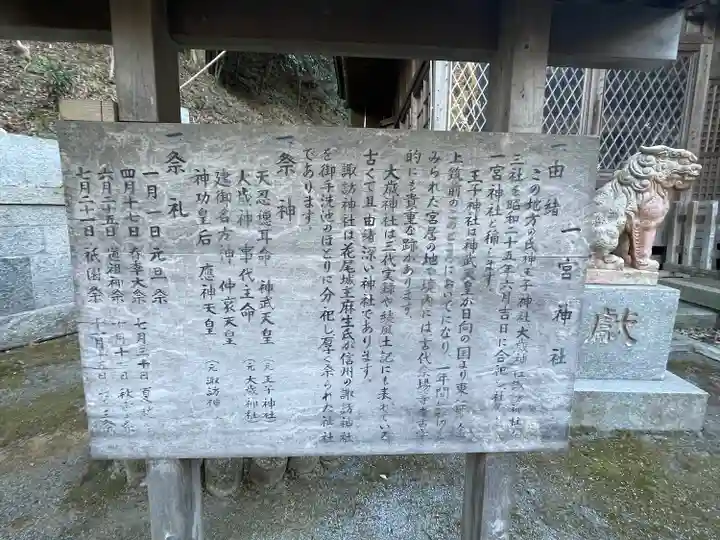 一 由緒 一宮神社
この地方の氏神王子神社大歳神社諏訪神社の
三社を昭和二十五年六月吉日に合祀し
一宮神社と称します。
王子神社は神武天皇が日向の国より東
上 筑前の にな 一年間
みられた宮居の地で境内には古代祭場
的にも貴重な跡があります。
大歳神社は三代実録や続風土記にも表れている
古くて且由緒深い神社であります。
諏訪神社は花尾城主麻生氏が信州の諏訪神社
を御手洗池のほとりに分祀し厚く祭られた社
であります。
一 祭神
天忍穂耳命 神武天皇 (元王子神社
大歳神 事代主命 (元大歳神社
建御名方神 仲哀天皇
神功皇后 應神天皇 (元諏訪神
一 祭礼
一月一日 元旦祭 七月三十日
四月十七日 春季大祭 十日 秋 祭
六月二五日 道祖神祭 十五日 祭
七月二十一日 祗園祭
獻